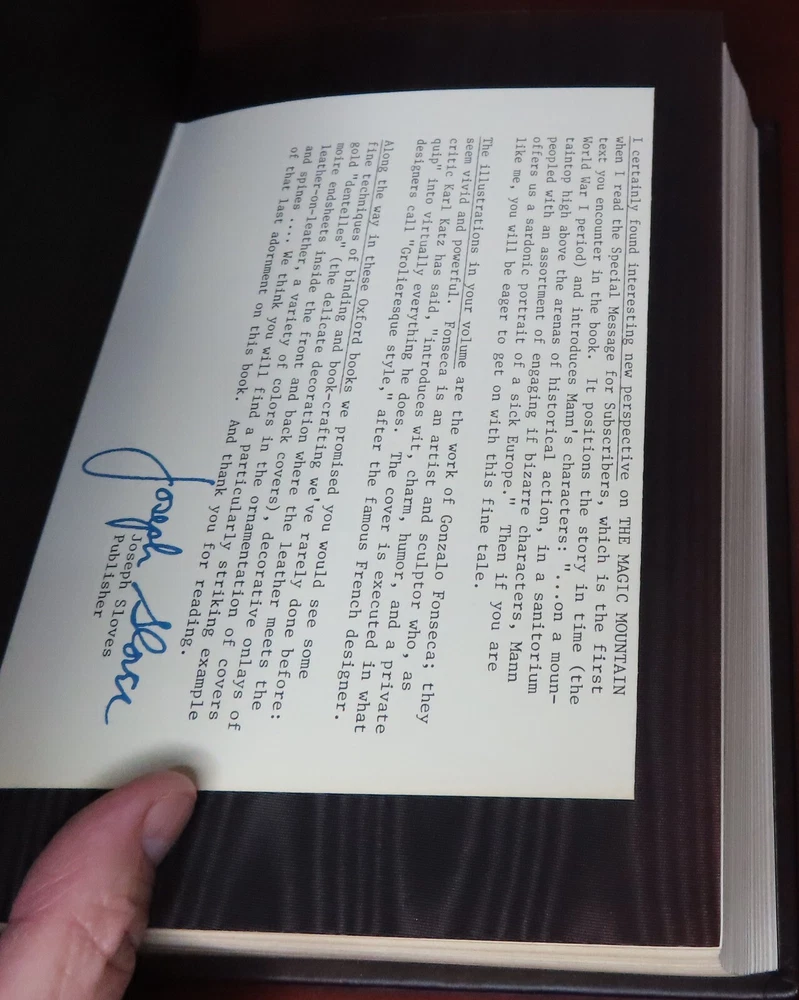 I certainly found interesting new perspective on THE MAGIC MOUNTAIN
when I read the Special Message for Subscribers, which is the first
text you encounter in the book. It positions the story in time (the
World War I period) and introduces Mann's characters: "...on a moun-
taintop high above the arenas of historical action, in a sanitorium
peopled with an assortment of engaging if bizarre characters, Mann
offers us a sardonic portrait of a sick Europe." Then if you are
like me, you will be eager to get on with this fine tale.
The illustrations in your volume are the work of Gonzalo Fonseca; they
seem vivid and powerful. Fonseca is an artist and sculptor who, as
critic Karl Katz has said, "introduces wit, charm, humor, and a private
quip" into virtually everything he does. The cover is executed in what
designers call "Grolieresque style," after the famous French designer.
Along the way in these Oxford books we promised you would see some
fine techniques of binding and book-crafting we've rarely done before:
gold "dentelles" (the delicate decoration where the leather meets the
moire endsheets inside the front and back covers), decorative onlays of
leather-on-leather, a variety of colors in the ornamentation of covers
and spines .... We think you will find a particularly striking example
of that last adornment on this book. And thank you for reading.
Joseph Sloves
Joseph Sloves
Publisher